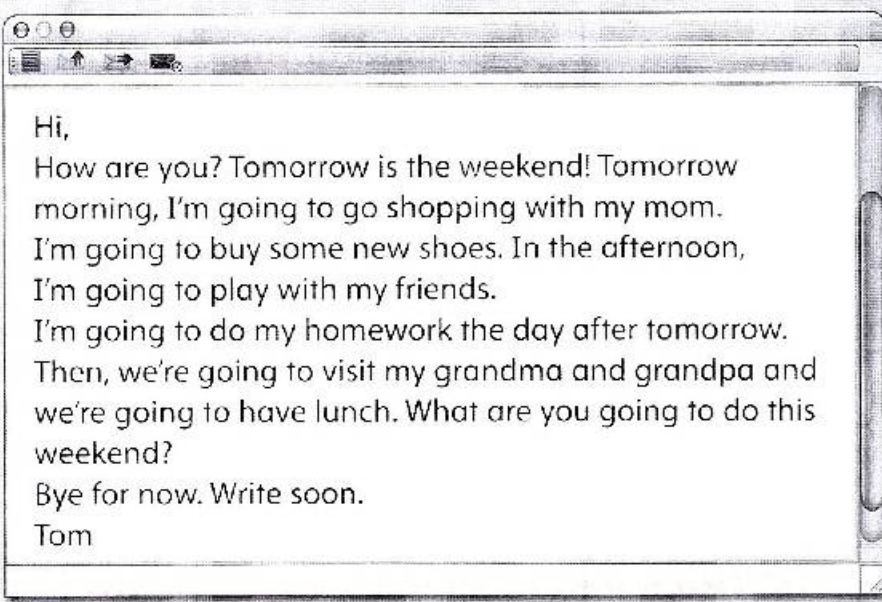 Hi,
How are you? Tomorrow is the weekend! Tomorrow
morning, I'm going to go shopping with my mom.
I'm going to buy some new shoes. In the afternoon,
I'm going to play with my friends.
I'm going to do my homework the day after tomorrow.
Then, we're going to visit my grandma and grandpa and
we're going to have lunch. What are you going to do this
weekend?
Bye for now. Write soon.
Tom